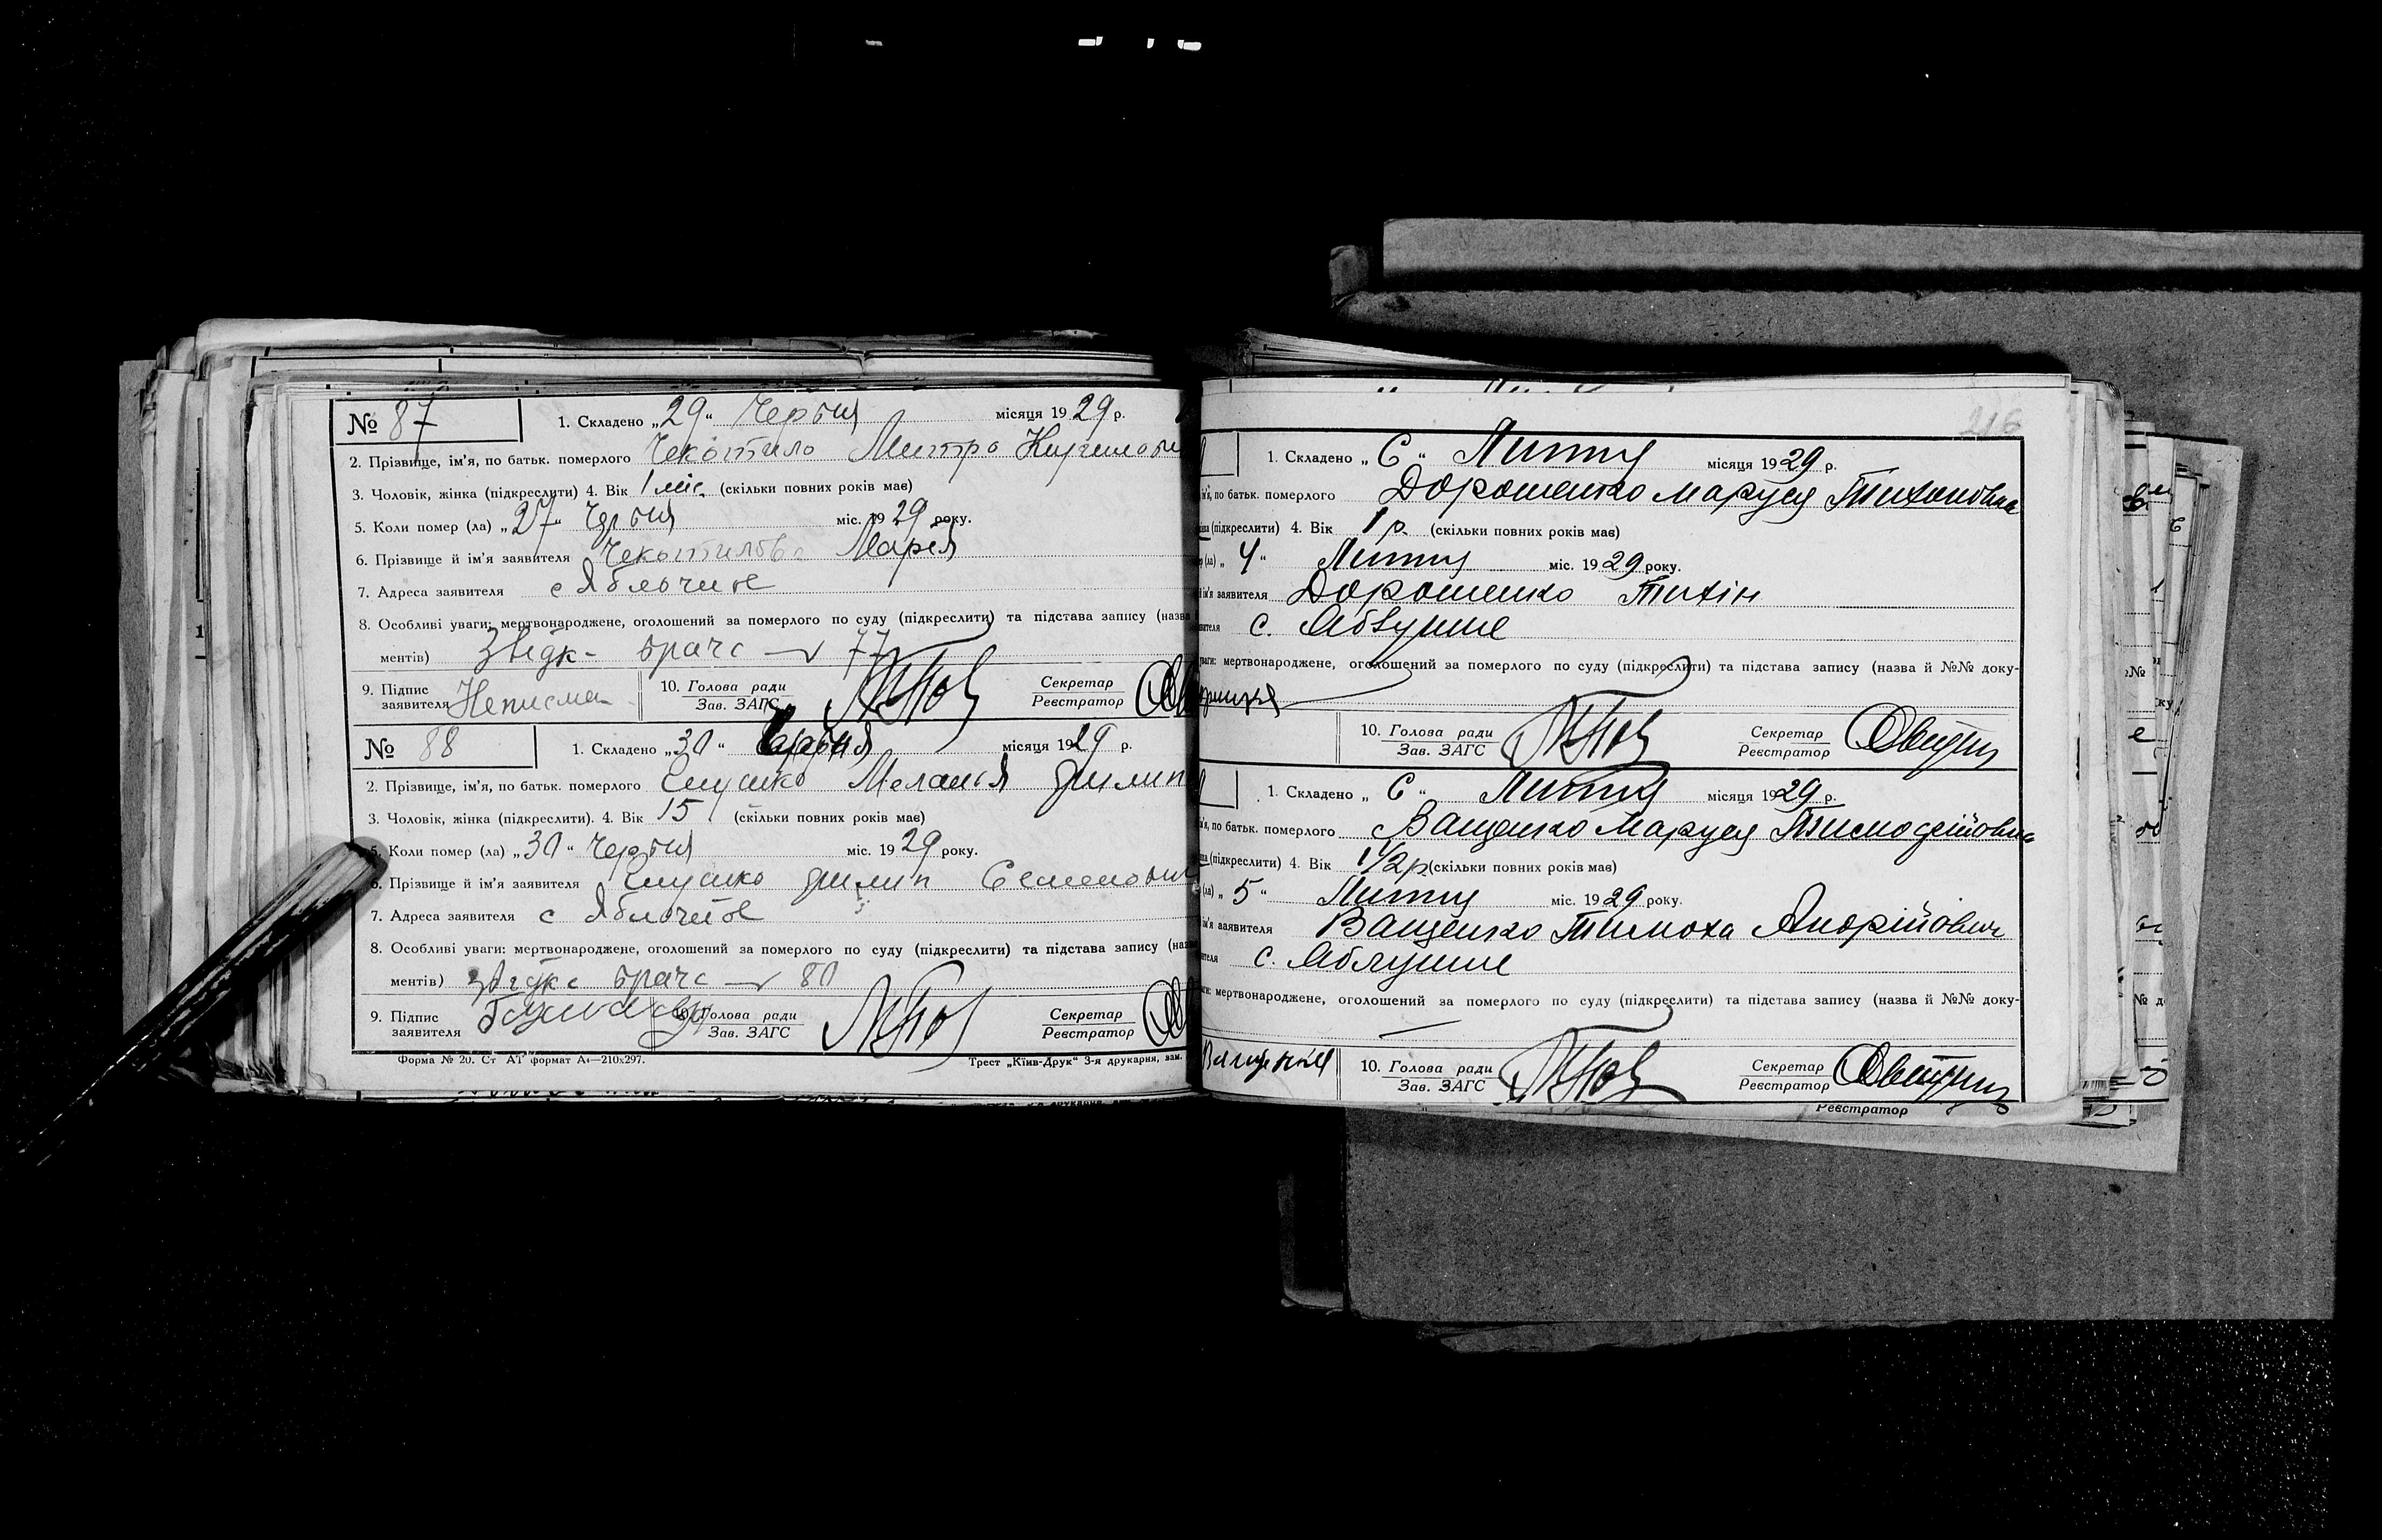 № 87
1. Складено „29“ Червня місяця 1929 р.
2. Прізвище, ім'я, по батьк. померлого Чекотило Митро
3. Чоловік, жінка (підкреслити) 4. Вік 1 міс. (скільки повних років має)
5. Коли помер (ла) „27“ Червня міс. 1929 року.
6. Прізвище й ім'я заявителя Чекотилова Марія
7. Адреса заявителя с Яблочное
8. Особливі уваги: мертвонароджене, оголошений за померлого по суду (підкреслити) та підстава запису (назва
ментів) врача 77
9. Підпис заявителя Неписма
10. Голова ради Зав. ЗАГС
Секретар Реєстратор
№ 88
1. Складено „30“ Червня місяця 1929 р.
2. Прізвище, ім'я, по батьк. померлого Меланія Филип
3. Чоловік, жінка (підкреслити). 4. Вік 15 (скільки повних років має)
5. Коли помер (ла) „30“ Червня міс. 1929 року.
6. Прізвище й ім'я заявителя Филип Семенович
7. Адреса заявителя с Яблочное
8. Особливі уваги: мертвонароджене, оголошений за померлого по суду (підкреслити) та підстава запису (назва
ментів) врача 80
9. Підпис заявителя
10. Голова ради Зав. ЗАГС
Секретар Реєстратор
Форма № 20. Ст АТ формат А4—210х297.
Трест „Київ-Друк“ 3-я друкарня, зам.
216
1. Складено „6“ Липня місяця 1929 р.
ім'я, по батьк. померлого Дорошенко Маруся Тихоновна
(підкреслити) 4. Вік 1 р. (скільки повних років має)
(ла) „4“ Липня міс. 1929 року.
ім'я заявителя Дорошенко Тихін
с. Яблушне
мертвонароджене, оголошений за померлого по суду (підкреслити) та підстава запису (назва й №№ доку-
10. Голова ради Зав. ЗАГС
Секретар Реєстратор
1. Складено „6“ Липня місяця 1929 р.
по батьк. померлого Ващенко Маруся Тимофеййовна
(підкреслити) 4. Вік 1 1/2 р (скільки повних років має)
(ла) „5“ Липня міс. 1929 року.
ім'я заявителя Ващенко Тимоха Андрійович
с. Яблушне
мертвонароджене, оголошений за померлого по суду (підкреслити) та підстава запису (назва й №№ доку-
10. Голова ради Зав. ЗАГС
Секретар Реєстратор
Реєстратор